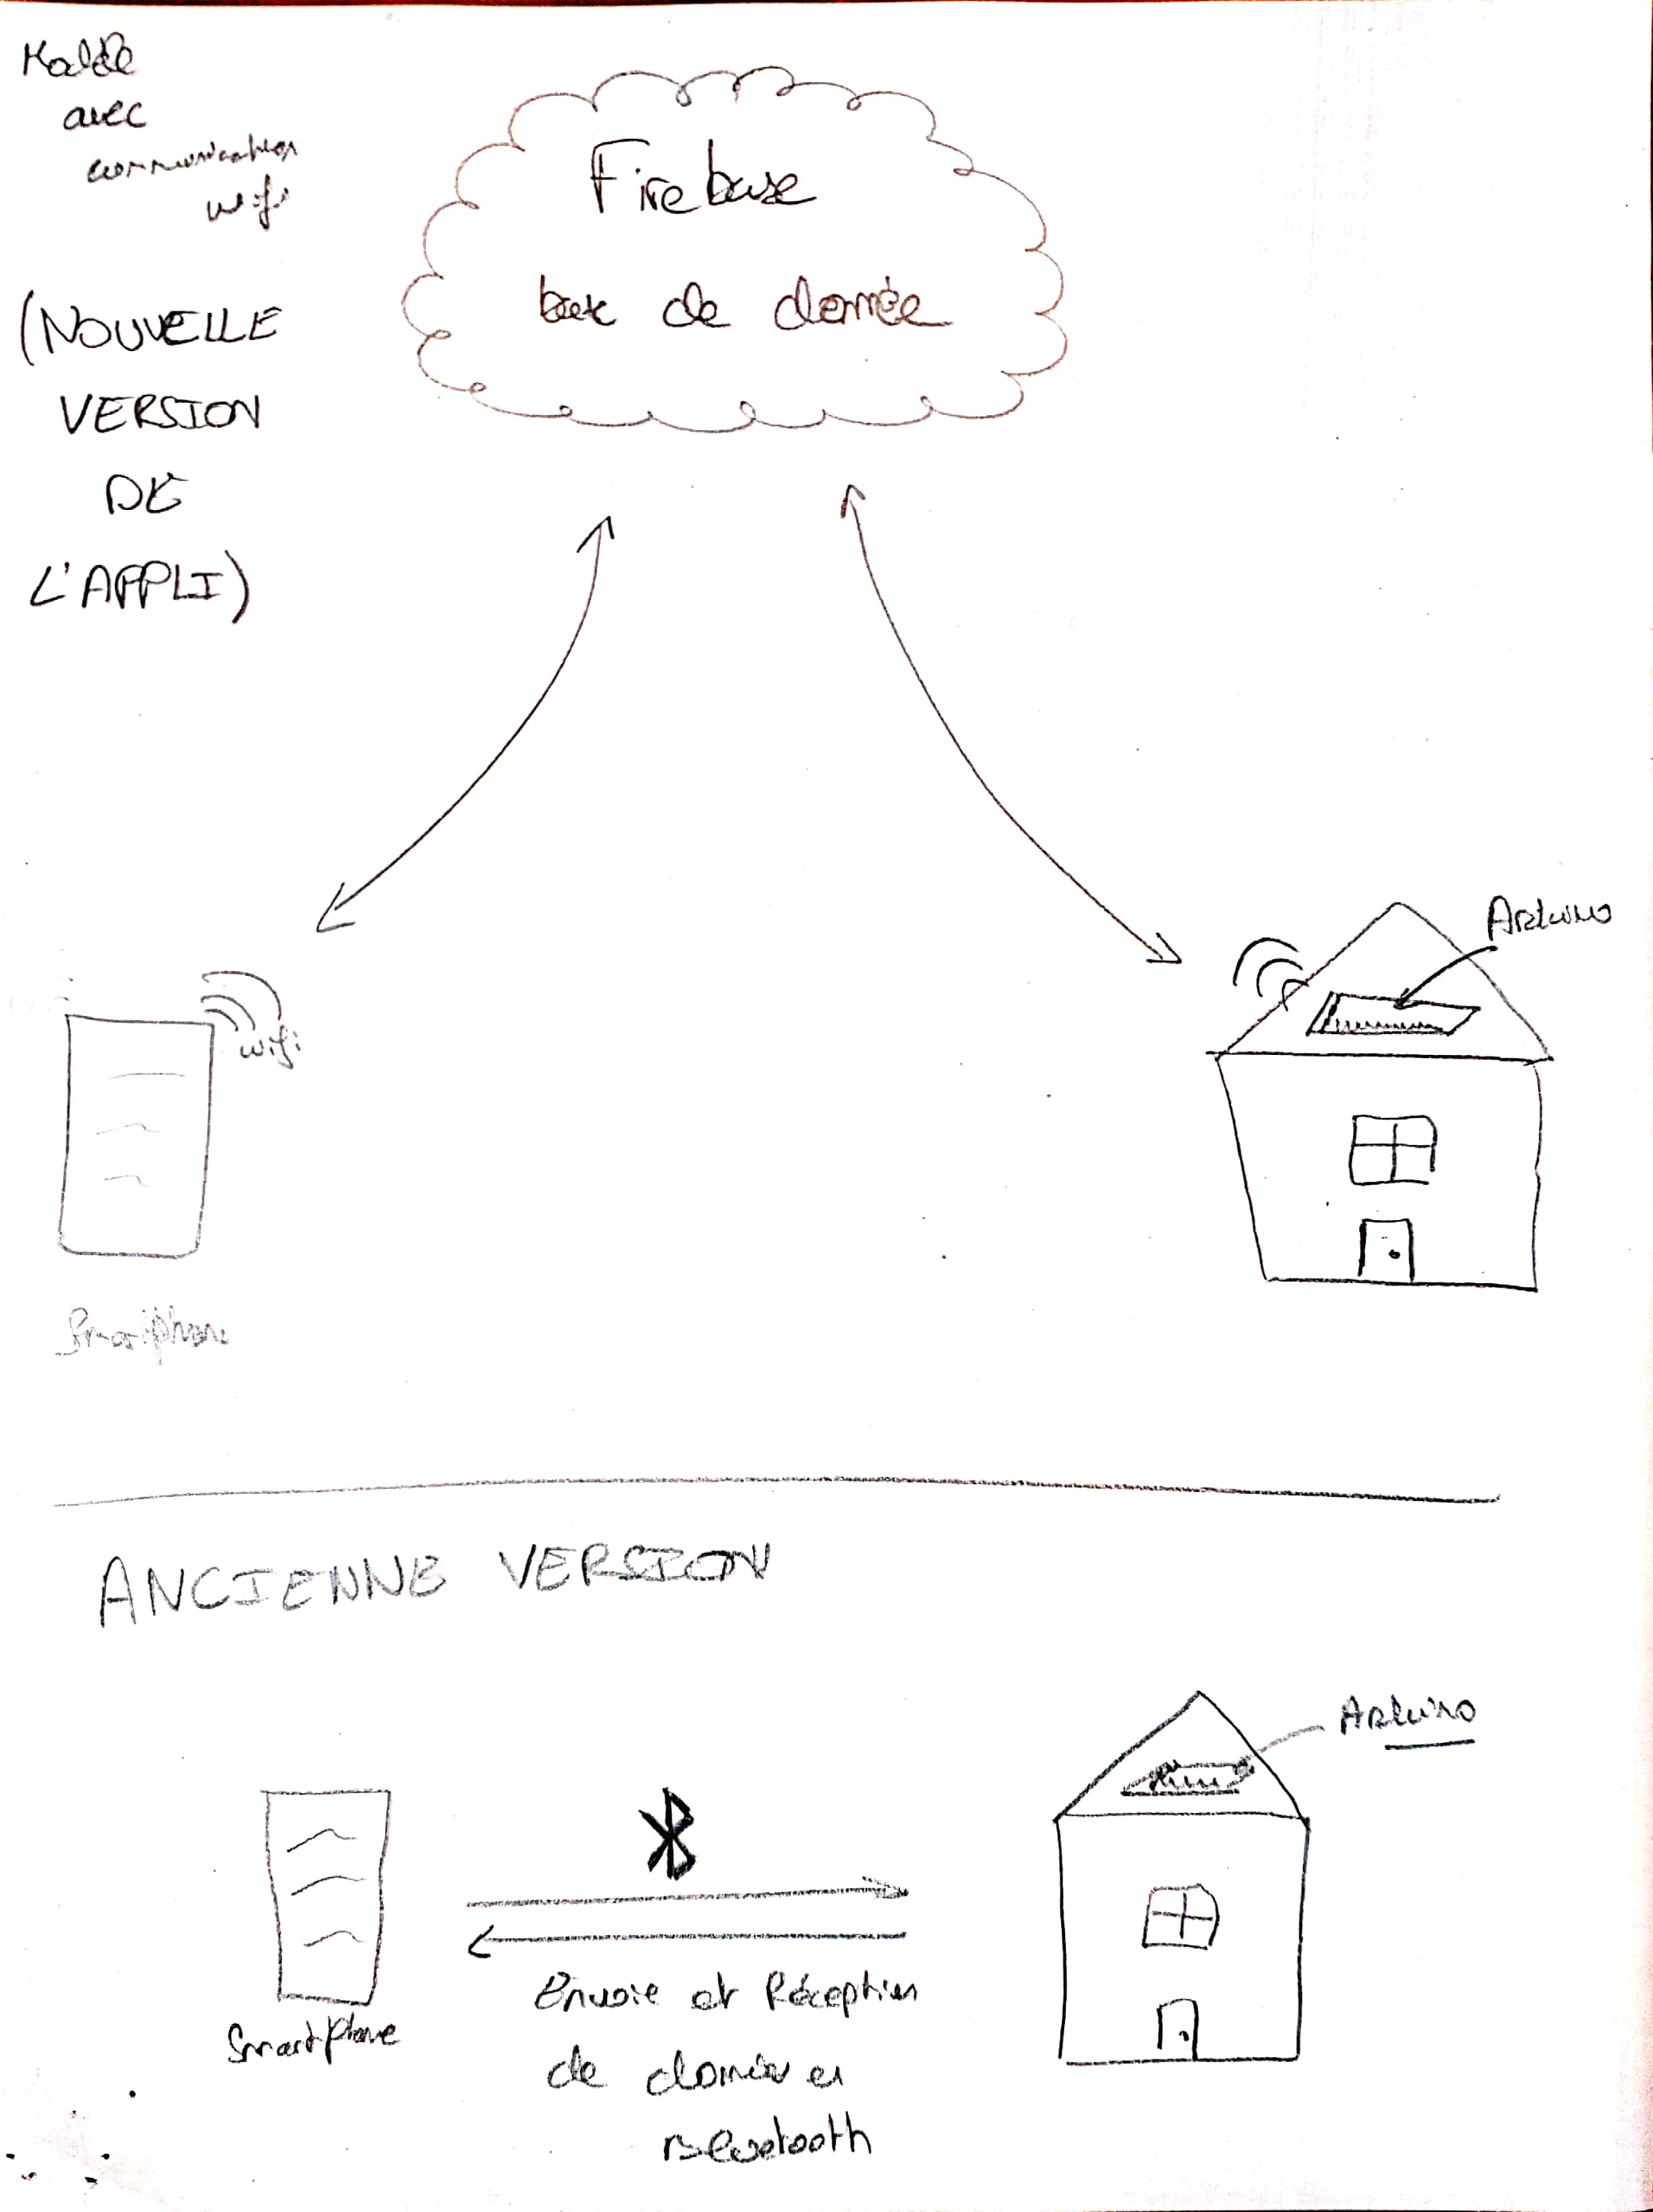 avec
communication
wifi
(NOUVELLE
VERSION
DE
L'APPLI)
Firebase
base de donnée
Arduino
wifi
Smartphone
ANCIENNE VERSION
Arduino
Smartphone
Envoie et Réception
de donnée en
Bluetooth